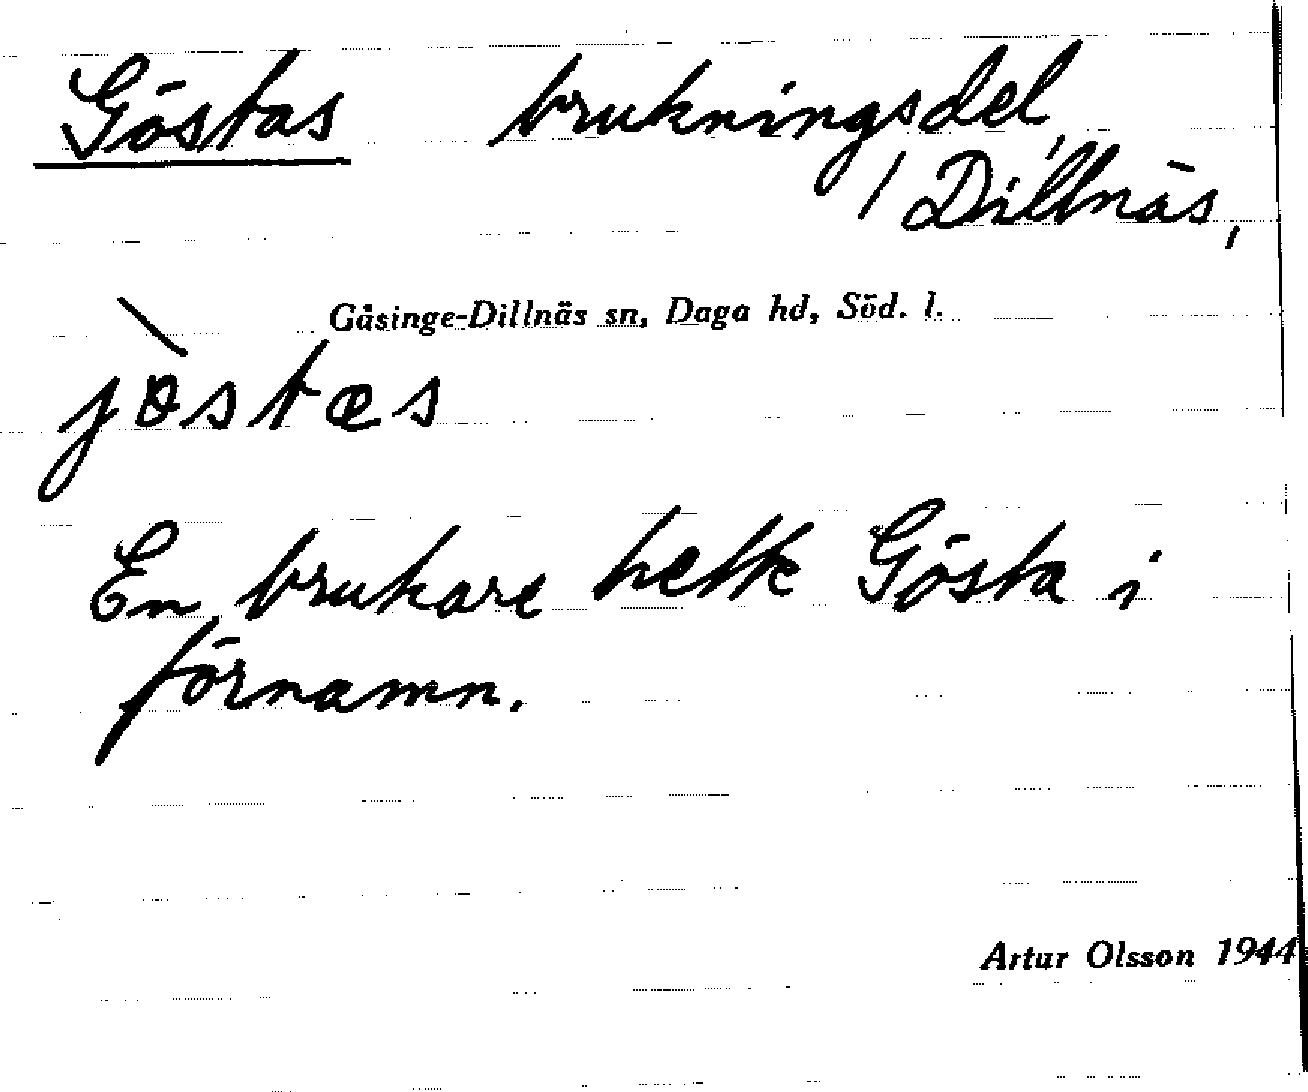 Göstas brukningsdel,
/ Dillnäs,
Gåsinge-Dillnäs sn, Daga hd, Söd. l.
jòstas
En brukare hette Gösta i
förnamn.
Artur Olsson 1944